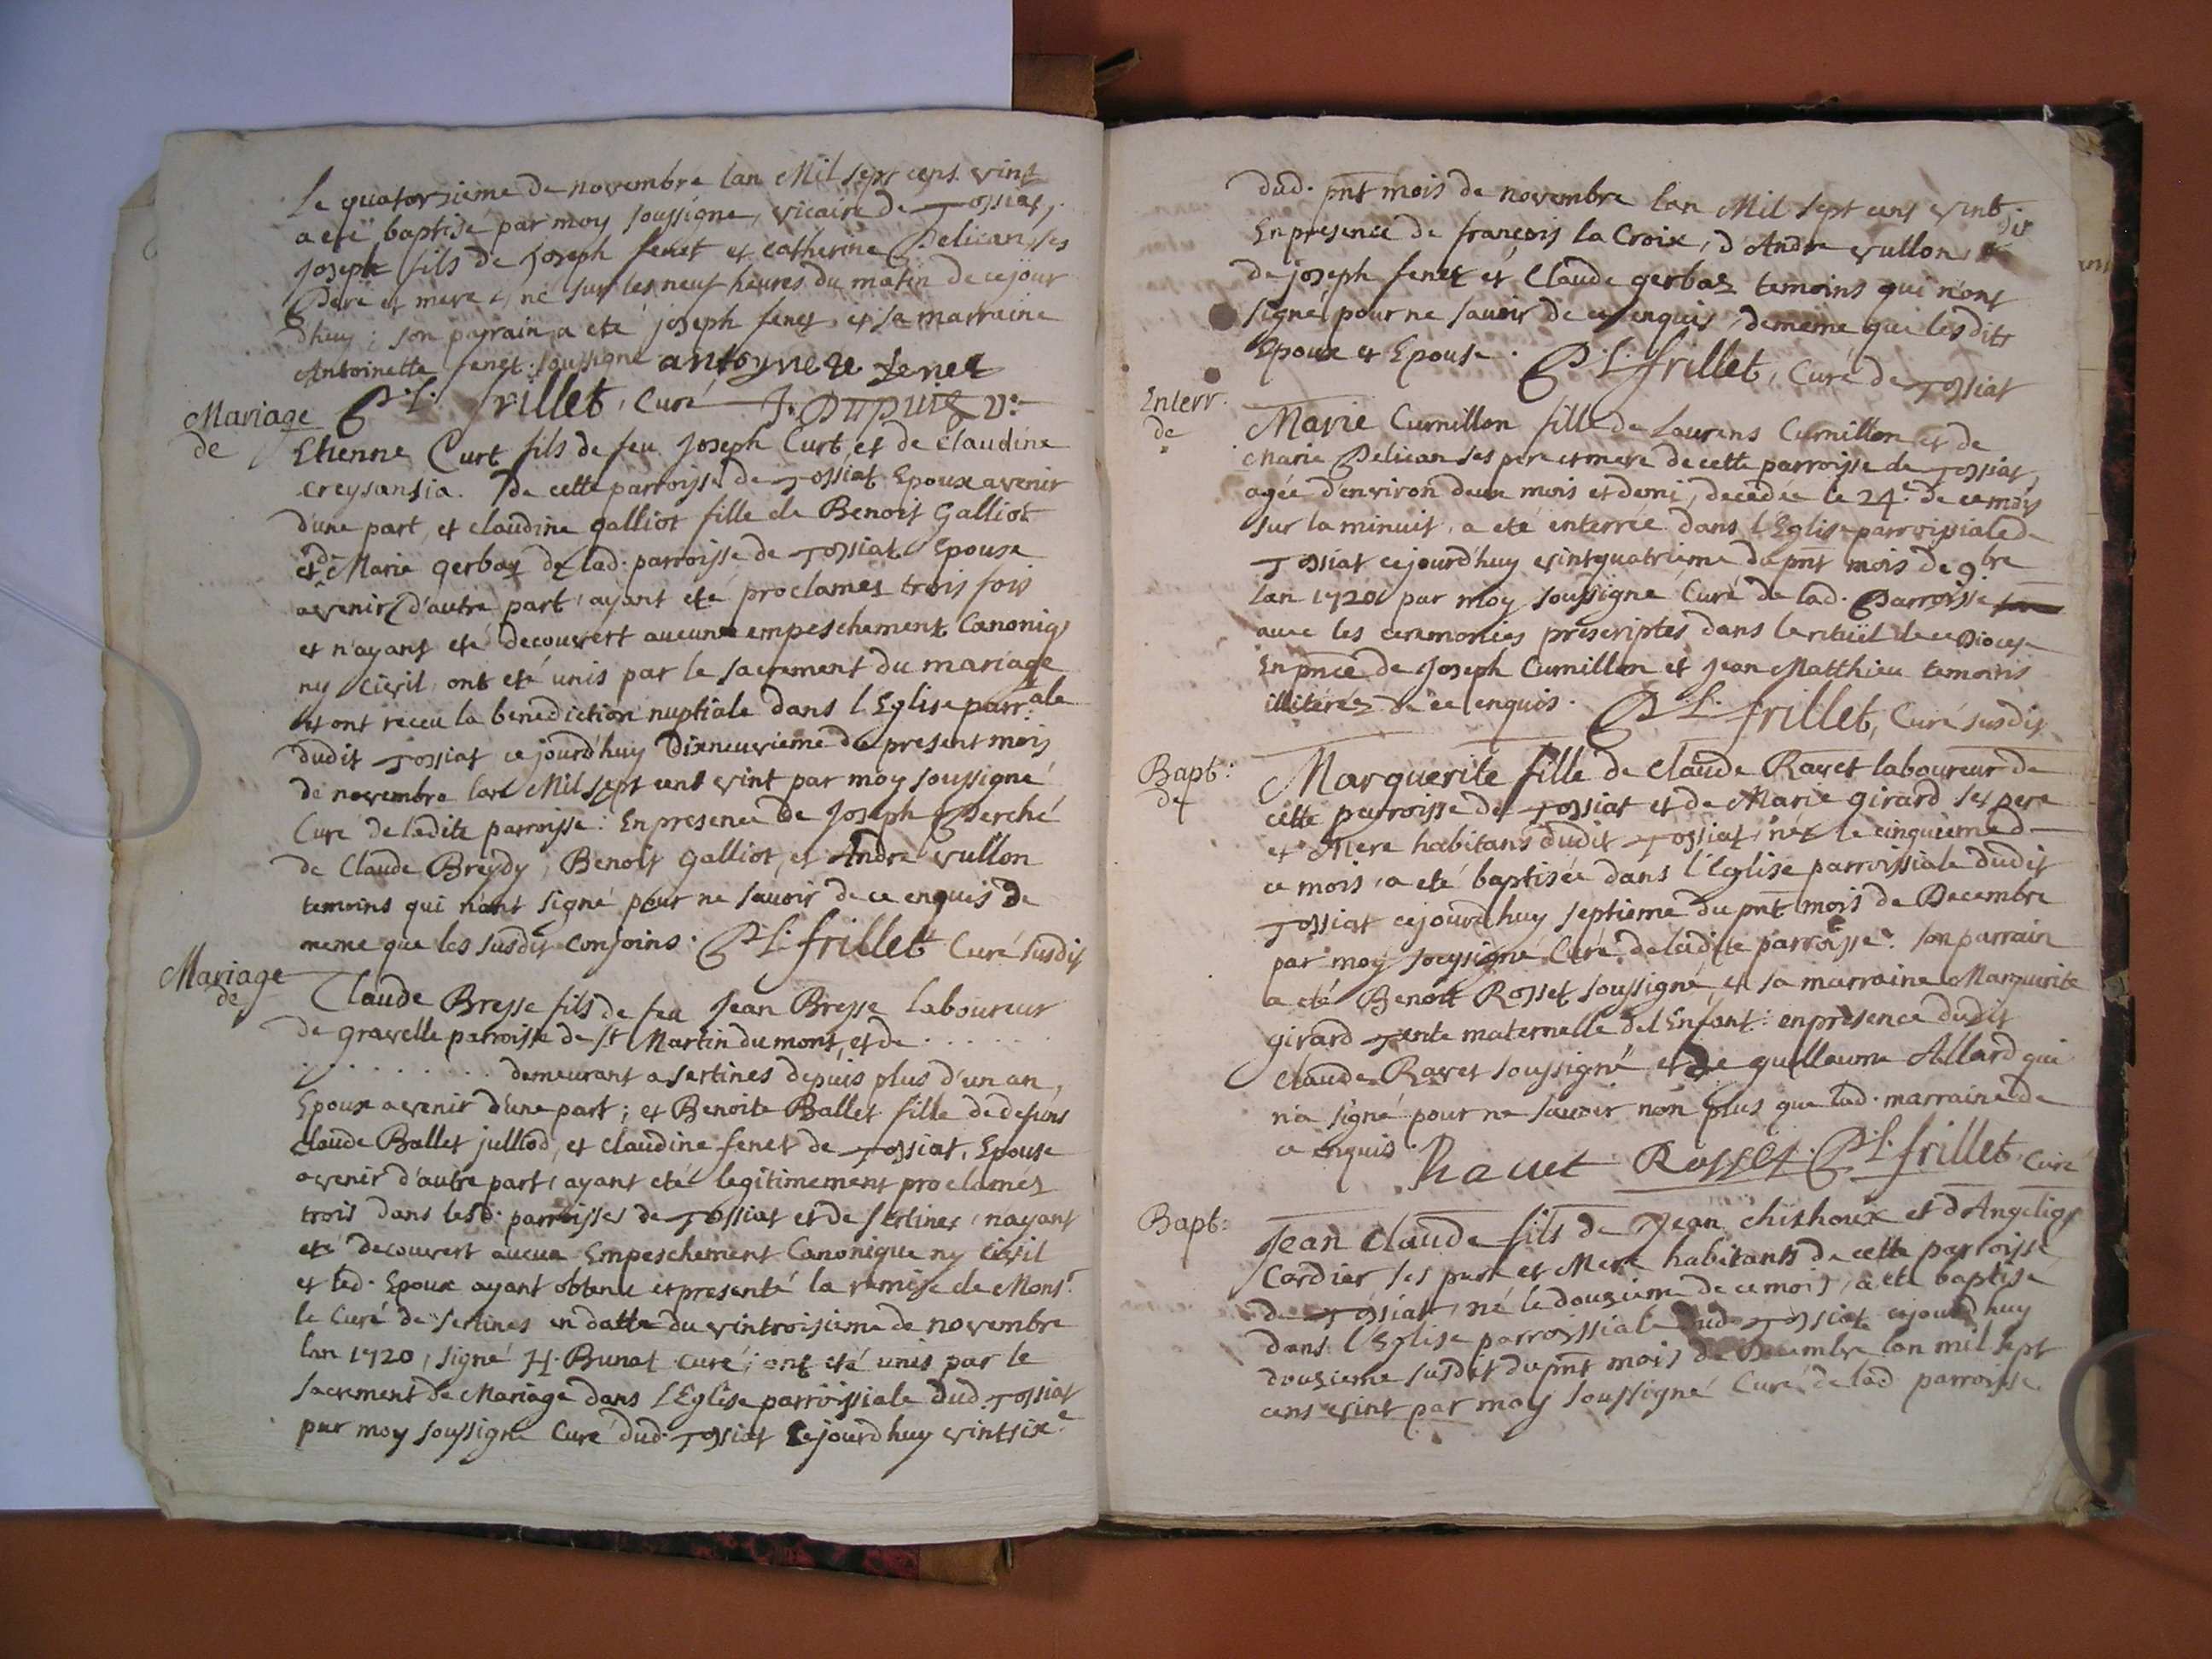 Le quatorsieme de novembre lan Mil sept cens vint
a eté baptisé par moy soussigné, vicaire de Tossiat,
Joseph fils de Joseph fenet et Catherine Pelican ses
Pere et mere, né sur les neuf heures du matin de cejour
dhuy; son parrain a eté joseph fenet et sa marraine
Antoinette fenet soussigné antoynete fenet
P. L. frillet, Curé J. Dupuis v.
Mariage
de
Etienne Curt fils de feu Joseph Curt, et de Claudine
Creysansia. de cette parroisse de Tossiat Epoux avenir
d'une part, et claudine galliot fille de Benoit Galliot
et de Marie gerbaz de lad. parroisse de Tossiat Epouse
avenir d'autre part, ayant eté proclames trois fois
et n'ayant eté decouvert aucune empeschement Canoniq
ny Civil, ont eté unis par le sacrement du mariage
et ont receu la benediction nuptiale dans l'Eglise parr.ale
dudit Tossiat cejourd'huy Dixneuvieme du present mois
de novembre lan Mil sept cent vint par moy soussigné
Curé de ledite parroisse: En presence de Joseph Perché
de Claude Breydy, Benoit galliot, et André vullon
temoins qui n'ont signé pour ne savoir de ce enquis de
meme que les susdit conjoins. P. L. frillet Curé susdit
Mariage
de
Claude Bresse fils de feu Jean Bresse laboureur
de gravelle parroisse de St Martin du mont, et de . . . . . .
. . . . . . . . . demeurant a sertines depuis plus d'un an,
Epoux avenir d'une part; et Benoite Ballet fille de defuns
claude Ballet julliod, et claudine fenet de Tossiat, Epouse
avenir d'autre part, ayant eté legitimement proclamés
trois dans lesd. parroisses de Tossiat et de sertines, nayant
eté decouvert aucun Empeschement Canonique ny Civil
et led. Epoux ayant obtenu et presenté la remise de Mons.r
le Curé de sertines en datte du vintroisieme de novembre
lan 1720, signé H. Bunat curé; ont eté unis par le
sacrement de Mariage dans l'Eglise parroissiale dud. Tossiat
par moy soussigné Curé dud. Tossiat Cejourd huy vintsix.e
dud. pnt mois de novembre lan Mil sept cent vint.
En presence de françois la Croix, d'André vullon, dit
de joseph fenet et Claude gerbaz temoins qui n'ont
signé pour ne savoir de ce enquis, de meme que lesdits
Epoux et Epouse. P. L. frillet, Curé de Tossiat
Enterr.
de
Marie Curnillon fille de Laurens Curnillon et de
Marie Pelican ses pere et mere de cette parroisse de Tossiat,
agée d'environ deux mois et demi, decedée le 24.e de ce mois
sur la minuit, a eté enterrée dans l'Eglise parroissiale de
Tossiat cejourd'huy vintquatrieme du pnt mois de 9bre
lan 1720 par moy soussigné Curé de lad. Parroisse
avec les ceremonies prescriptes dans le rituël de ce Diocese
En pnce de Joseph Curnillon et Jean Matthieu temoins
illiterez de ce enquis. P. L. frillet, Curé susdit
Bapt:
de
Marguerite fille de Claude Ravet laboureur de
cette parroisse de Tossiat et de Marie girard ses pere
et Mere habitans dudit Tossiat, née le cinquieme d
ce mois, a eté baptisée dans l'Eglise parroissiale dudit
Tossiat cejourdhuy septieme du pnt mois de Decembre
par moy soussigné Curé de ladite parroisse. son parrain
a eté Benoit Rosset soussigné, et sa marraine Marguerite
girard Tente maternelle de l'Enfant: en presence dudit
claude Ravet soussigné, et de guillaume Allard qui
n'a signé pour ne savoir non plus que lad. marraine de
ce enquis. Rauet Rosset P. L. frillet, Curé
Bapt:
Jean Claude fils de Jean chishoux et d'Angeliq
Cordier ses pere et Mere habitants de cette parroisse
de Tossiat, né le douzieme de ce mois, a eté baptisé
dans l'Eglise parroissiale dud. Tossiat cejourd huy
douzieme susdit du pnt mois de Decembre lan mil sept
cens vint par moy soussigné Curé de lad parroisse.